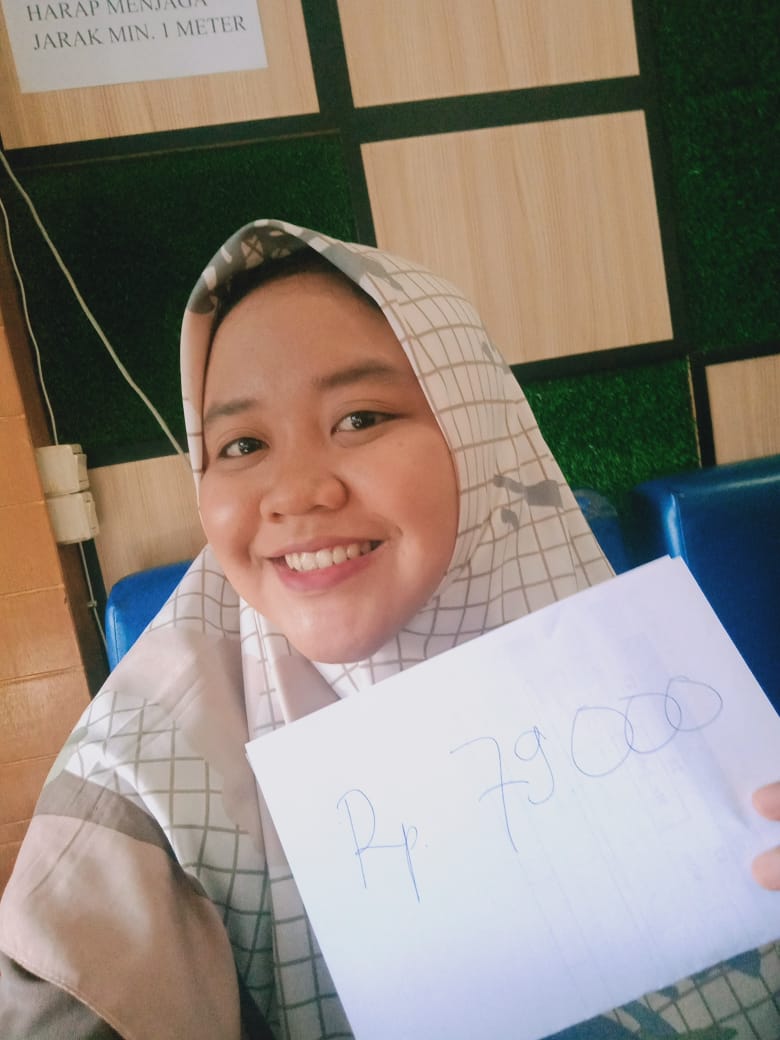 HARAP MENJAGA
JARAK MIN. 1 METER
Rp. 79.000